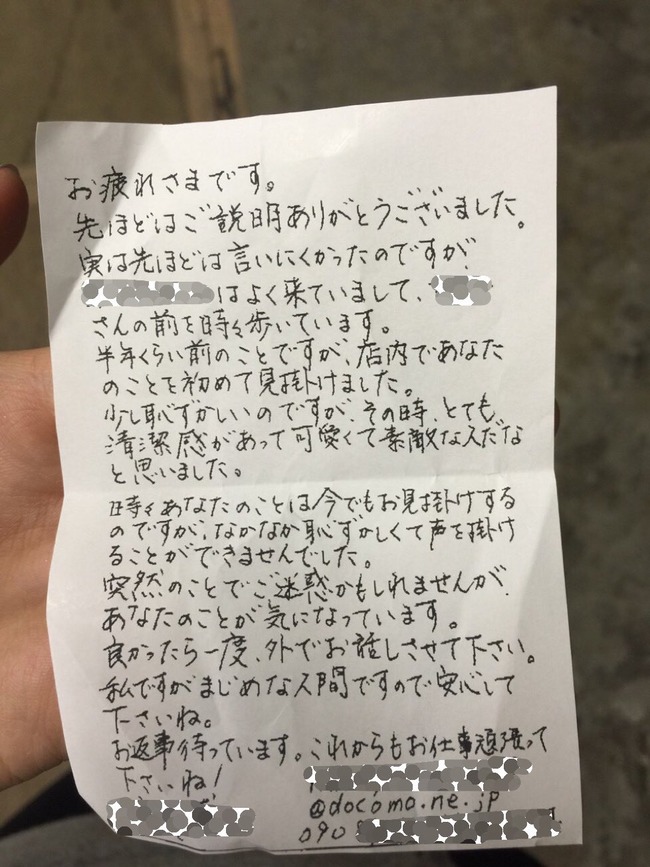 お疲れさまです。
先ほどはご説明ありがとうございました。
実は先ほどは言いにくかったのですが、
はよく来ていまして、
さんの前を時々歩いています。
半年くらい前のことですが、店内であなた
のことを初めて見掛けました。
少し恥ずかしいのですが、その時、とても、
清潔感があって可愛くて素敵な人だな
と思いました。
時々あなたのことは今でもお見掛けする
のですが、なかなか恥ずかしくて声を掛け
ることができませんでした。
突然のことでご迷惑かもしれませんが、
あなたのことが気になっています。
良かったら一度、外でお話しさせて下さい。
私ですがまじめな人間ですので安心して
下さいね。
お返事待っています。これからもお仕事頑張って
下さいね!
@docomo.ne.jp
090